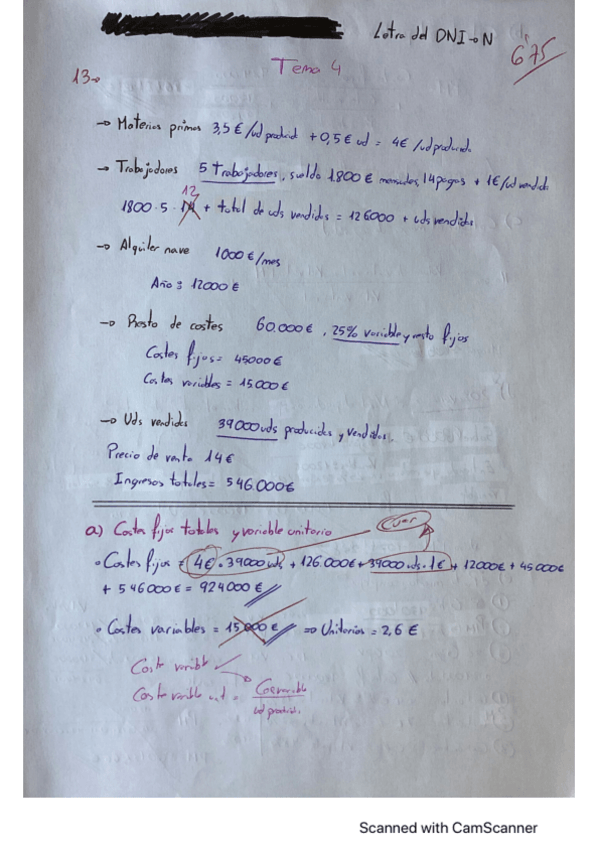 Letra del DNI → N
6'75
Tema 4
13→
→ Materias primas 3,5 €/ud product + 0,5 € ud = 4€ /ud produced.
→ Trabajadores 5 trabajadores, sueldo 1.800 € mensuales, 14 pagas + 1€/ud vendida
12
1800 · 5 · 14 + total de uds vendidas = 126000 + uds vendidas
→ Alquiler nave 1000 €/mes
Año: 12000 €
→ Resto de costes 60.000 €, 25% variable y resto fijos
Costes fijos = 45000 €
Costes variables = 15.000 €
→ Uds vendidas 39000 uds producidas y vendidas.
Precio de venta 14 €
Ingresos totales = 546.000€
a) Costes fijos totales y variable unitario
· Costes fijos = 4€ · 39000 uds + 126.000€ + 39000 uds · 1€ + 12000€ + 45000€
+ 546000€ = 924000 €
· Costes variables = 15.000 € ⇒ Unitarios = 2,6 €
Coste variable
Coste variable ud =
ud product.
Scanned with CamScanner